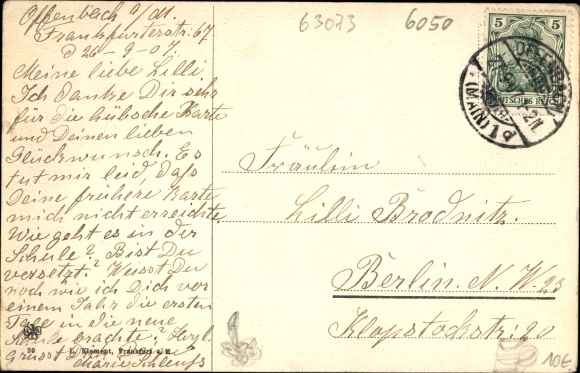 63073
6050
Offenbach a/M.
Frankfurterstr. 67
d 26-9-07.
Meine liebe Lilli.
Ich danke Dir sehr
für die hübsche Karte
und Deinen lieben
Glückwunsch. Es
tut mir leid, daß
Deine frühere Karte
mich nicht erreichte.
Wie geht es in der
Schule? Bist Du
versetzt? Weisst Du
noch wie ich Dich vor
einem Jahr die ersten
Tage in die neue
Schule brachte. Herzl.
Grüsst Dich
30 L. Klement, Frankfurt a. M.
5 5
DEUTSCHES REICH
OFFENBACH
(MAIN) 1
Fräulein
Lilli Brodnitz.
Berlin. N. W. 23
Klopstockstr: 20
10€